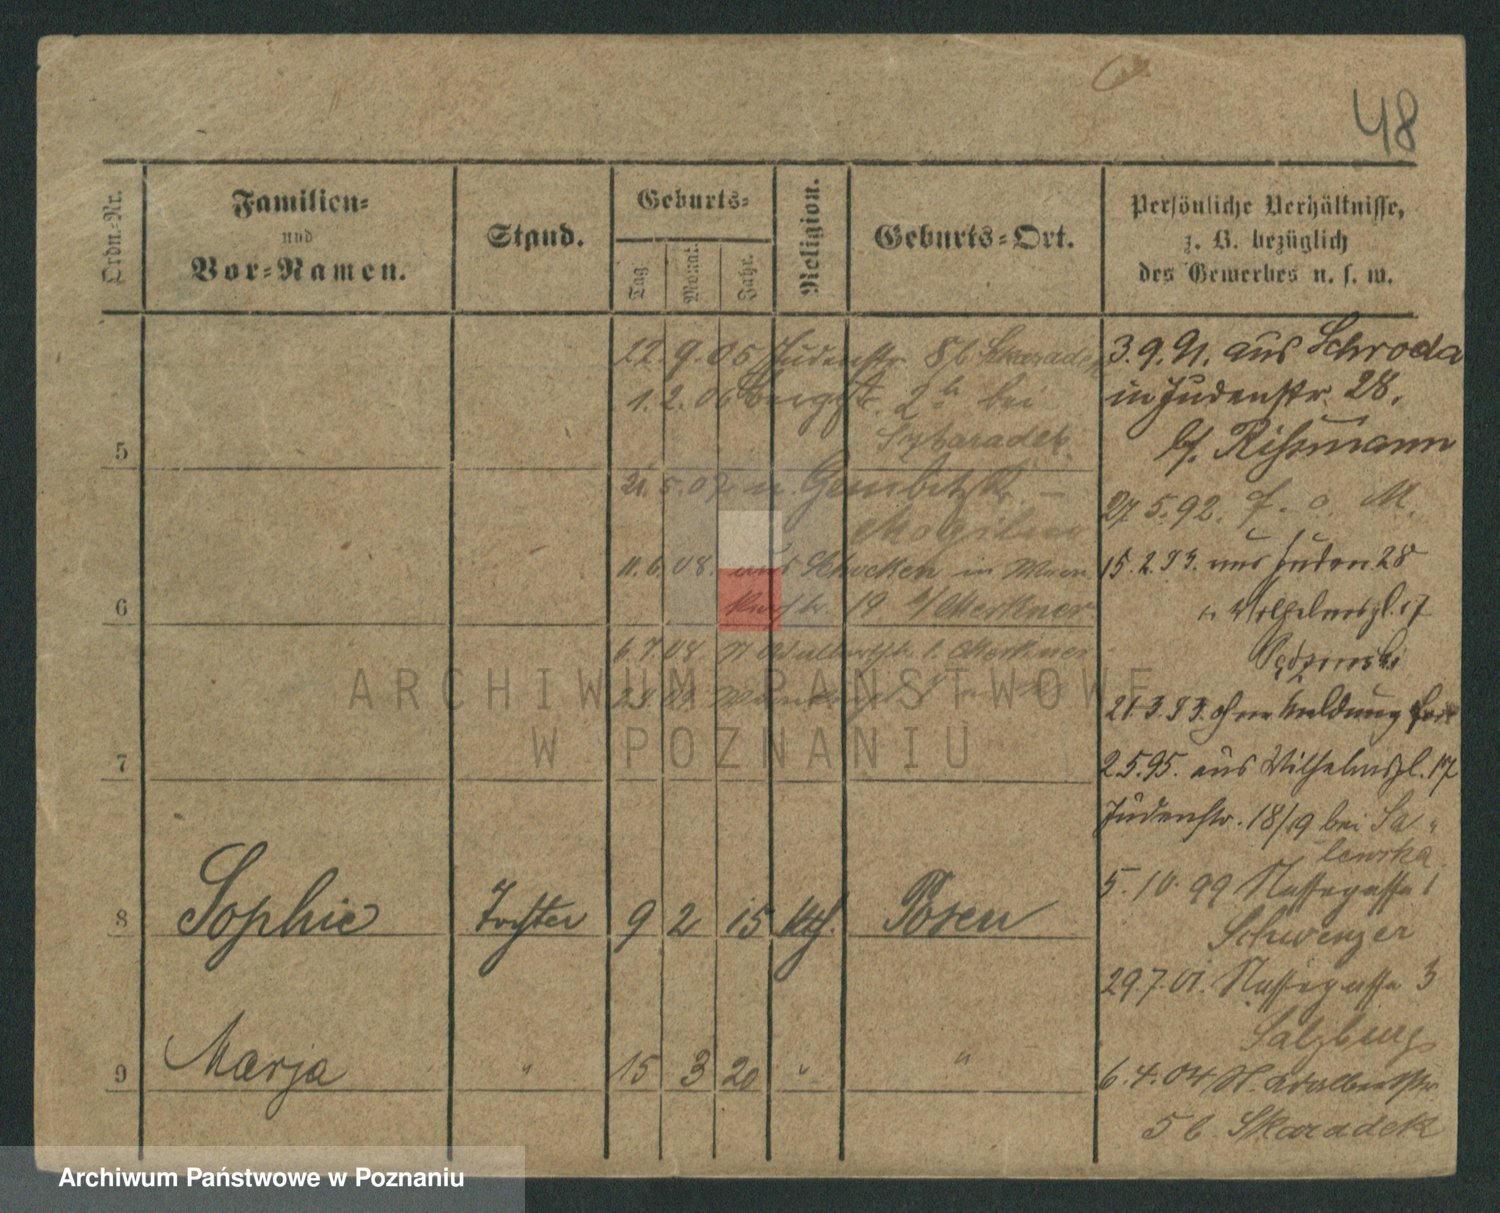 48
Ordn.-Nr.
Familien-
und
Vor-Namen.
Stand.
Geburts-
Tag.
Monat.
Jahr.
Religion.
Geburts-Ort.
Persönliche Verhältnisse,
z. B. bezüglich
des Gewerbes u. s. w.
22.9.05 Judenstr. 8 b. Skaradek
1.2.06 Bergstr. 2 bei
5
21.5.07 n.
Mogilno
11.6.08. aus Schocken in
6
19 b/ Merkner
6.7.08
7
8 Sophie Tochter 9 2 15 kth. Posen
9 Marja " 15 3 20 " "
3.9.91. aus Schroda
in Judenstr. 28.
bf. Rissmann
27.5.92.
15.2.93. aus Juden 28
n. Wilhelmspl. 17
21.3.93. ohne Meldung fort
2.5.95. aus Wilhelmspl. 17
Judenstr. 18/19 bei Sa-
lewska
5.10.99 Nassegasse 1
Schwenzer
29.7.01. Nassegasse 3
Salzburg
6.4.04 St. Adalbertstr.
5 b. Skaradek
ARCHIWUM PAŃSTWOWE
W POZNANIU
Archiwum Państwowe w Poznaniu